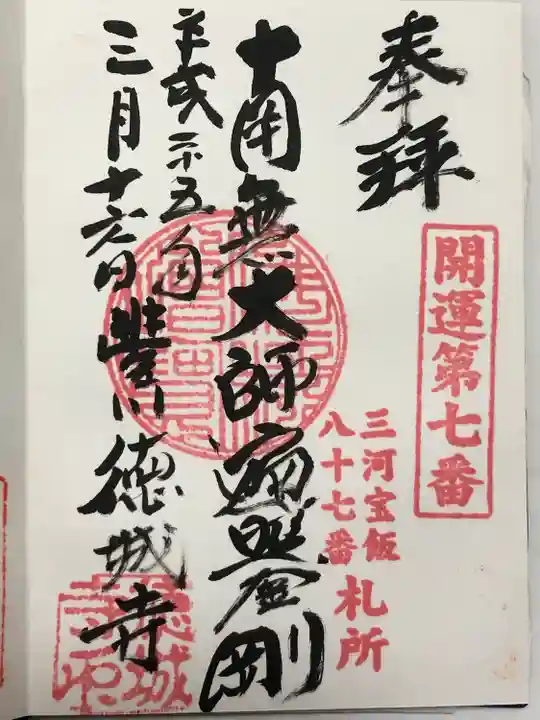 奉拝
開運第七番
三河宝飯
八十七番 札所
南無大師遍照金剛
平成二十五年
三月十六日 豊川 徳城寺